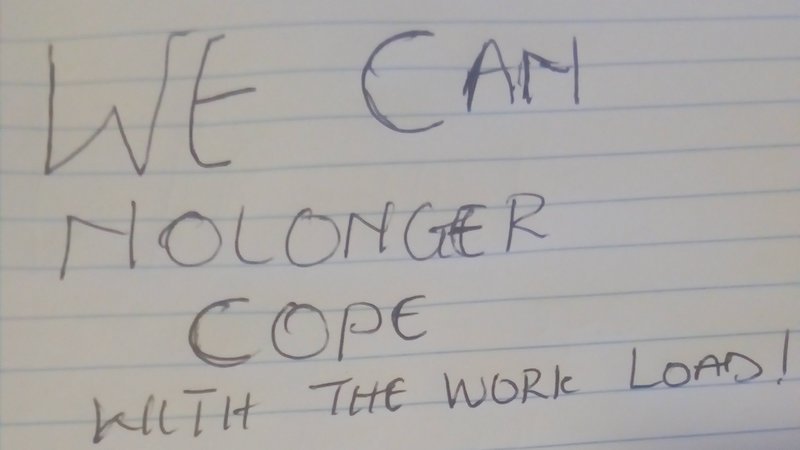 WE CAN
NOLONGER
COPE
WITH THE WORK LOAD!